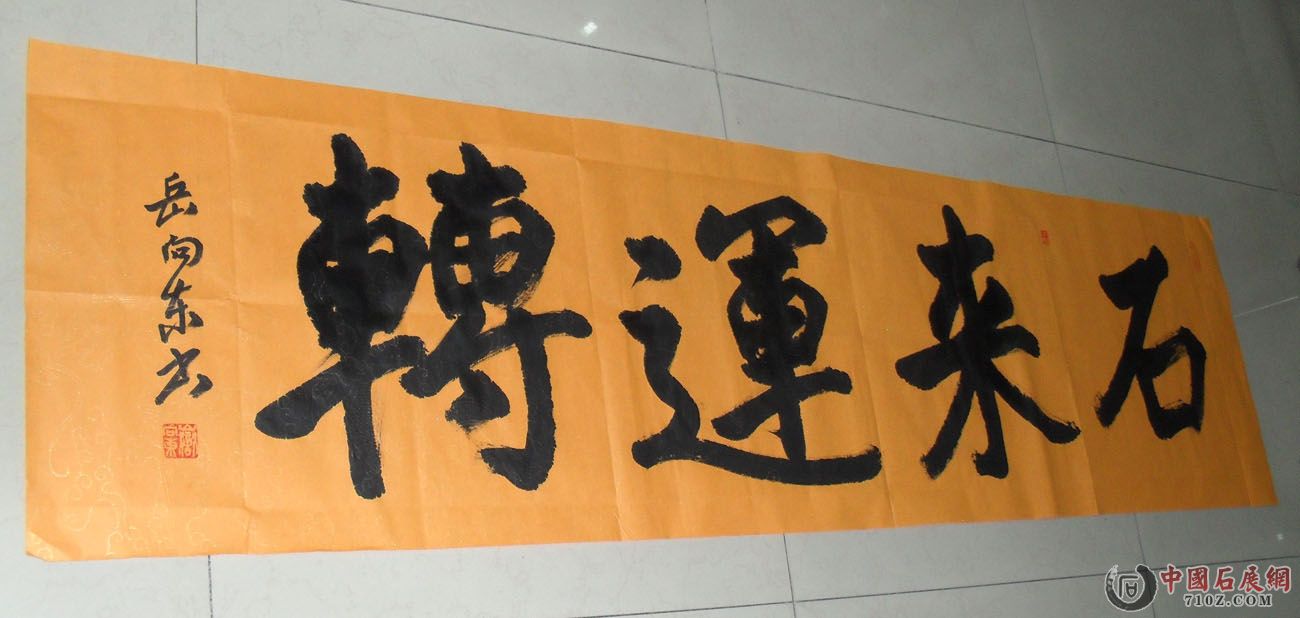 石来運轉
岳向东书
中國石展網
710Z.COM